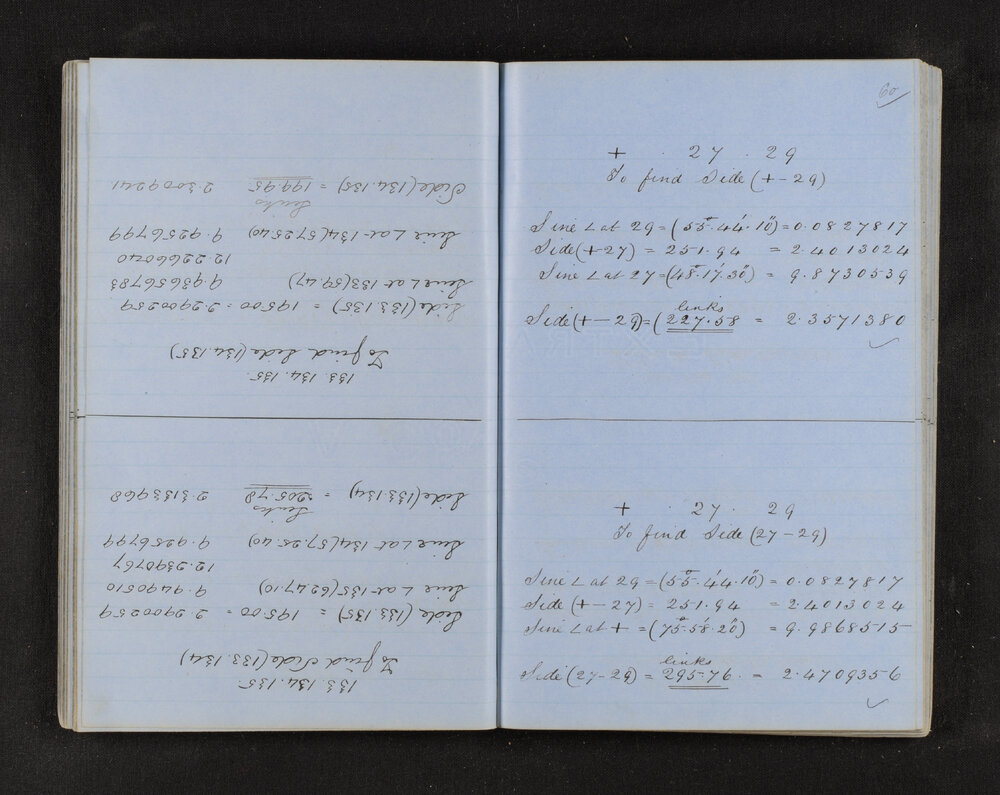 133.134.135.
To find Side (133.134)
Side (133.135) = 195.00 = 2.2900259
Sine ∠ at 135 (62.47.10) 9.9490510
12.2390767
Sine ∠ at 134 (57.25.40) 9.9256799
Links
Side (133.134) = 205.78 2.3133968
133.134.135.
To find Side (134.135)
Side (133.135) = 195.00 = 2.2900259
Sine ∠ at 133 (59.47) 9.93656783
12.2266040
Sine ∠ at 134 (57.25.40) 9.9256799
Links
Side (134.135) = 199.95 2.3009241
60
+ . 27 . 29
To find Side (+ - 29)
Sine ∠ at 29 = (55°.44'.10") = 0.0827817
Side (+ 27) = 251.94 = 2.4013024
Sine ∠ at 27 = (48°.17'.30") = 9.8730539
links
Side (+ - 29) = (227.58 = 2.3571380
+ . 27 . 29
To find Side (27 - 29)
Sine ∠ at 29 = (55°.44'.10") = 0.0827817
Side (+ - 27) = 251.94 = 2.4013024
Sine ∠ at + = (75°.58'.20") = 9.9868515
links
Side (27 - 29) = 295.76. = 2.4709356